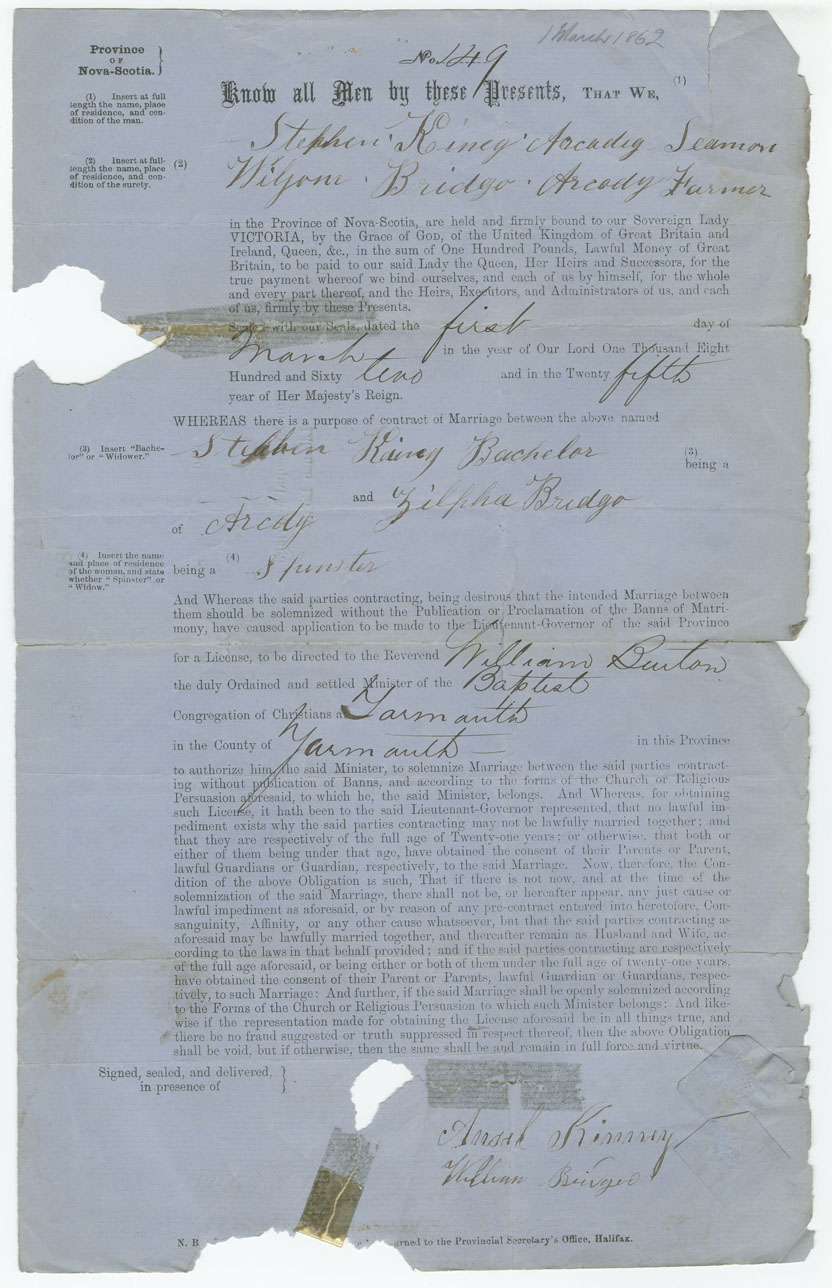 1 March 1862
Province
OF
Nova-Scotia.
No. 149
Know all Men by these Presents, THAT WE, (1)
(1) Insert at full
length the name, place
of residence, and con-
dition of the man.
Stephen Kiney Arcadey Seamon
(2) Insert at full-
length the name, place
of residence, and con-
dition of the surety.
(2)
Bridgo Arcody Farmer
in the Province of Nova-Scotia, are held and firmly bound to our Sovereign Lady
VICTORIA, by the Grace of GOD, of the United Kingdom of Great Britain and
Ireland, Queen, &c., in the sum of One Hundred Pounds, Lawful Money of Great
Britain, to be paid to our said Lady the Queen, Her Heirs and Successors, for the
true payment whereof we bind ourselves, and each of us by himself, for the whole
and every part thereof, and the Heirs, Executors, and Administrators of us, and each
of us, firmly by these Presents.
Sealed with our Seals, dated the first day of
March in the year of Our Lord One Thousand Eight
Hundred and Sixty two and in the Twenty fifth
year of Her Majesty's Reign.
WHEREAS there is a purpose of contract of Marriage between the above named
(3) Insert "Bache-
lor" or "Widower."
Stephen Kainy Bachelor (3)
being a
and Zilpha Bridgo
of Arcdy
(4) Insert the name
and place of residence
of the woman, and state
whether "Spinster" or
"Widow."
being a (4) Spinster
And Whereas the said parties contracting, being desirous that the intended Marriage between
them should be solemnized without the Publication or Proclamation of the Banns of Matri-
mony, have caused application to be made to the Lieutenant-Governor of the said Province
for a License, to be directed to the Reverend William Burton
the duly Ordained and settled Minister of the Baptest
Congregation of Christians at Yarmouth
in the County of Yarmouth in this Province
to authorize him, the said Minister, to solemnize Marriage between the said parties contract-
ing without publication of Banns, and according to the forms of the Church or Religious
Persuasion aforesaid, to which he, the said Minister, belongs. And Whereas, for obtaining
such License, it hath been to the said Lieutenant-Governor represented, that no lawful im-
pediment exists why the said parties contracting may not be lawfully married together; and
that they are respectively of the full age of Twenty-one years; or otherwise, that both or
either of them being under that age, have obtained the consent of their Parents or Parent,
lawful Guardians or Guardian, respectively, to the said Marriage. Now, therefore, the Con-
dition of the above Obligation is such, That if there is not now, and at the time of the
solemnization of the said Marriage, there shall not be, or hereafter appear, any just cause or
lawful impediment as aforesaid, or by reason of any pre-contract entered into heretofore, Con-
sanguinity, Affinity, or any other cause whatsoever, but that the said parties contracting as
aforesaid may be lawfully married together, and thereafter remain as Husband and Wife, ac-
cording to the laws in that behalf provided; and if the said parties contracting are respectively
of the full age aforesaid, or being either or both of them under the full age of twenty-one years,
have obtained the consent of their Parent or Parents, lawful Guardian or Guardians, respec-
tively, to such Marriage: And further, if the said Marriage shall be openly solemnized according
to the Forms of the Church or Religious Persuasion to which such Minister belongs: And like-
wise if the representation made for obtaining the License aforesaid be in all things true, and
there be no fraud suggested or truth suppressed in respect thereof, then the above Obligation
shall be void, but if otherwise, then the same shall be and remain in full force and virtue.
Signed, sealed, and delivered,
in presence of
Ansel Kinney
William Bridgeo
N. B urned to the Provincial Secretary's Office, Halifax.